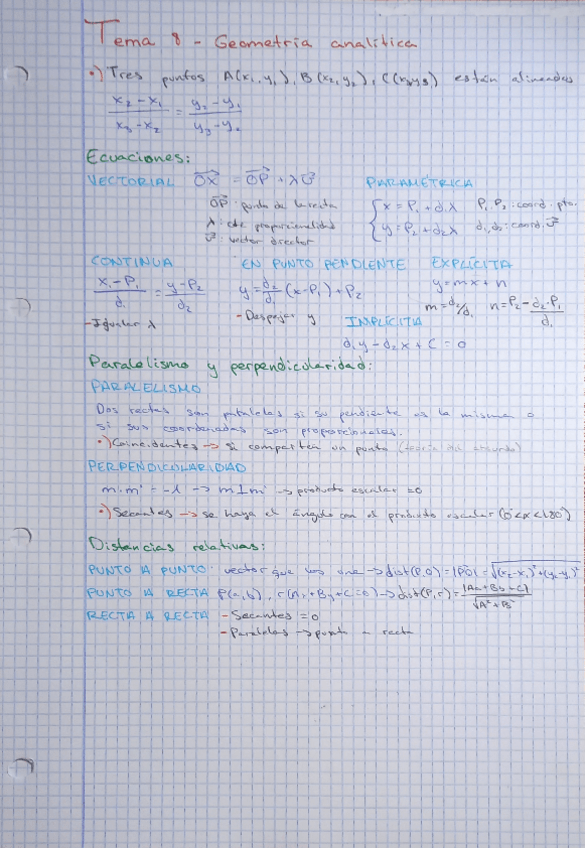 Tema 8 - Geometría analítica
•) Tres puntos A(x₁, y₁), B(x₂, y₂), C(x₃y₃) están alineados
(x₂ - x₁)/(x₃ - x₂) = (y₂ - y₁)/(y₃ - y₂)
Ecuaciones:
VECTORIAL OX = OP + λv
OP: punto de la recta
λ: cte proporcionalidad
v: vector director
PARAMÉTRICA
x = P₁ + d₁λ
y = P₂ + d₂λ
P₁ P₂: coord. pto.
d₁, d₂: coord. v
CONTINUA
(x - P₁)/d₁ = (y - P₂)/d₂
- Igualar λ
EN PUNTO PENDIENTE
y = d₂/d₁ (x - P₁) + P₂
- Despejar y
EXPLÍCITA
y = mx + n
m = d₂/d₁ n = P₂ - (d₂·P₁)/d₁
IMPLÍCITA
d₁y - d₂x + C = 0
Paralelismo y perpendicularidad:
PARALELISMO
Dos rectas son paralelas si su pendiente es la misma o
si sus coordenadas son proporcionales.
•) Coincidentes → si comparten un punto (teoría del absurdo)
PERPENDICULARIDAD
m·m' = -1 → m⊥m' → producto escalar = 0
•) Secantes → se haya el ángulo con el producto escalar (0<x<180)
Distancias relativas:
PUNTO A PUNTO: vector que los une → dist(P,Q) = |PQ| = √(x₂-x₁)² + (y₂-y₁)²
PUNTO A RECTA P(a,b), r(Ax+By+C=0) → dist(P,r) = |Aa+Bb+C|/√A²+B²
RECTA A RECTA - Secantes = 0
- Paralelas → punto a recta